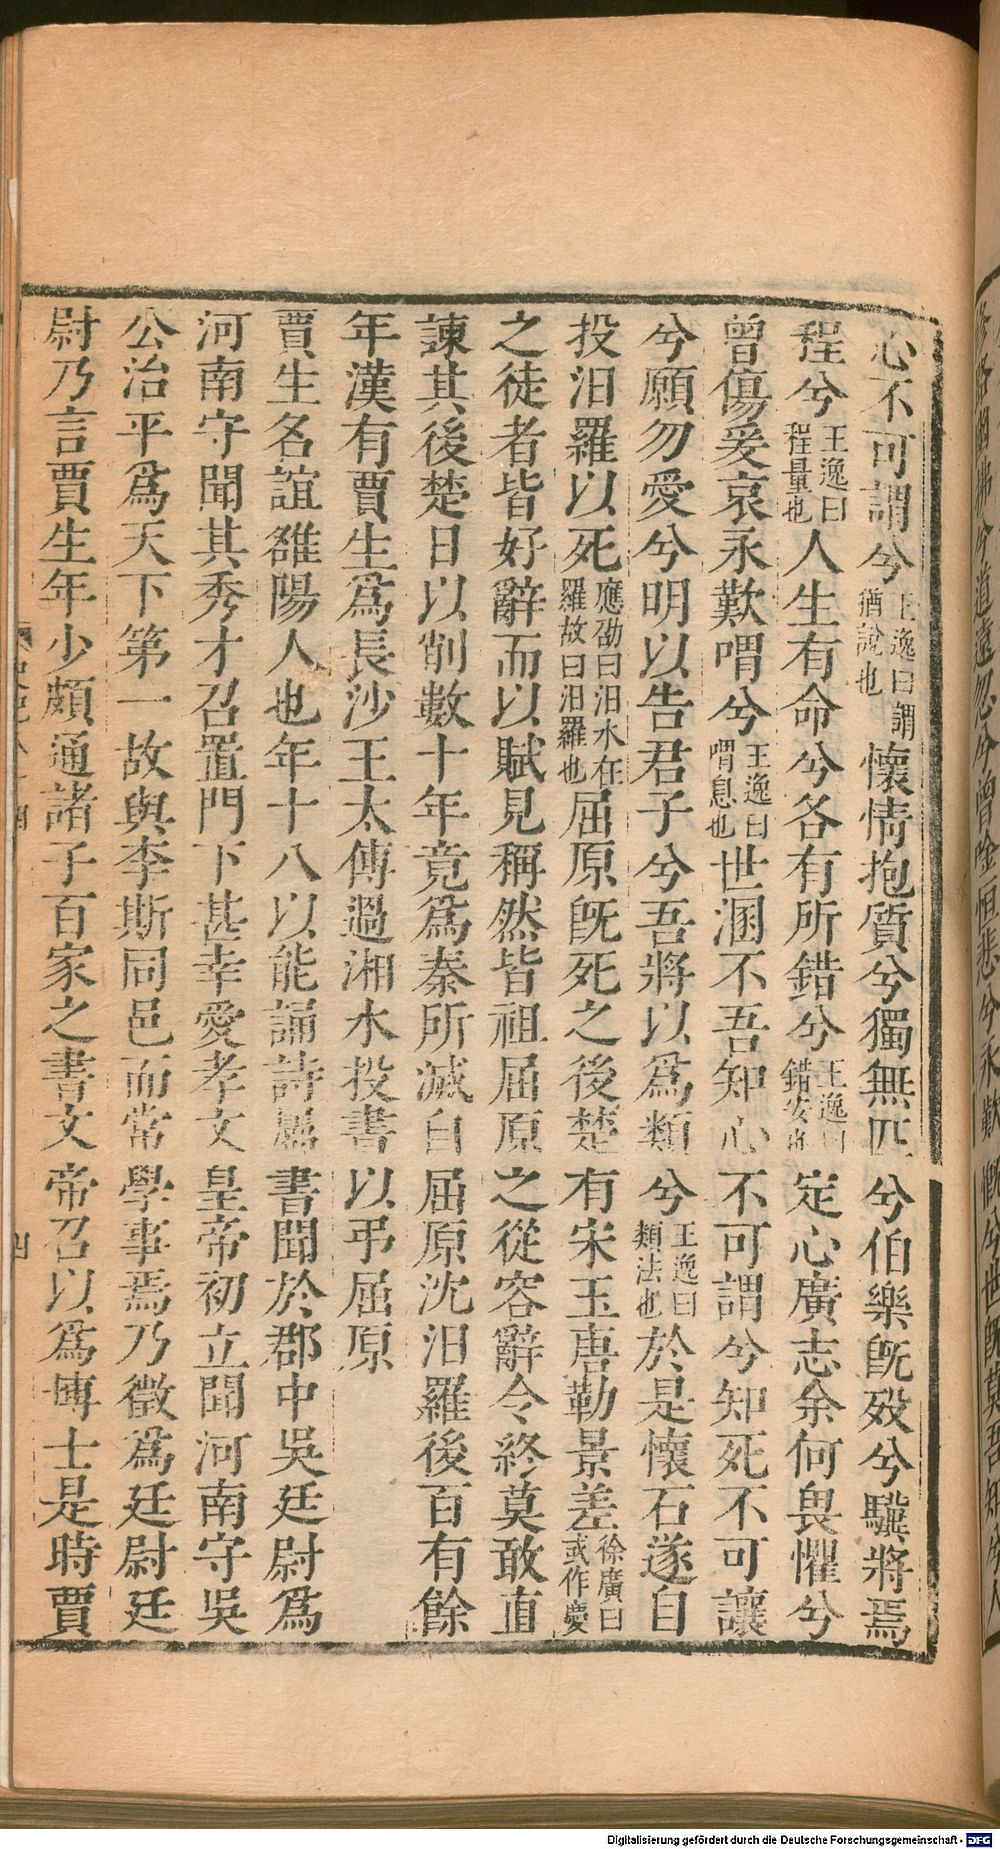 心不可謂兮王逸曰謂猶說也懷情抱質兮獨無匹兮伯樂旣歿兮驥將焉
程兮王逸曰程量也人生有命兮各有所錯兮王逸曰錯安也定心廣志余何畏懼兮
曾傷爰哀永歎喟兮王逸曰喟息也世溷不吾知心不可謂兮知死不可讓
兮願勿愛兮明以告君子兮吾將以爲類兮王逸曰類法也於是懷石遂自
投汨羅以死應劭曰汨水在羅故曰汨羅也屈原旣死之後楚有宋玉唐勒景差徐廣曰或作慶
之徒者皆好辭而以賦見稱然皆祖屈原之從容辭令終莫敢直
諫其後楚日以削數十年竟爲秦所滅自屈原沈汨羅後百有餘
年漢有賈生爲長沙王太傅過湘水投書以弔屈原
賈生名誼雒陽人也年十八以能誦詩屬書聞於郡中吳廷尉爲
河南守聞其秀才召置門下甚幸愛孝文皇帝初立聞河南守吳
公治平爲天下第一故與李斯同邑而常學事焉乃徵爲廷尉廷
尉乃言賈生年少頗通諸子百家之書文帝召以爲博士是時賈
Digitalisierung gefördert durch die Deutsche Forschungsgemeinschaft - DFG